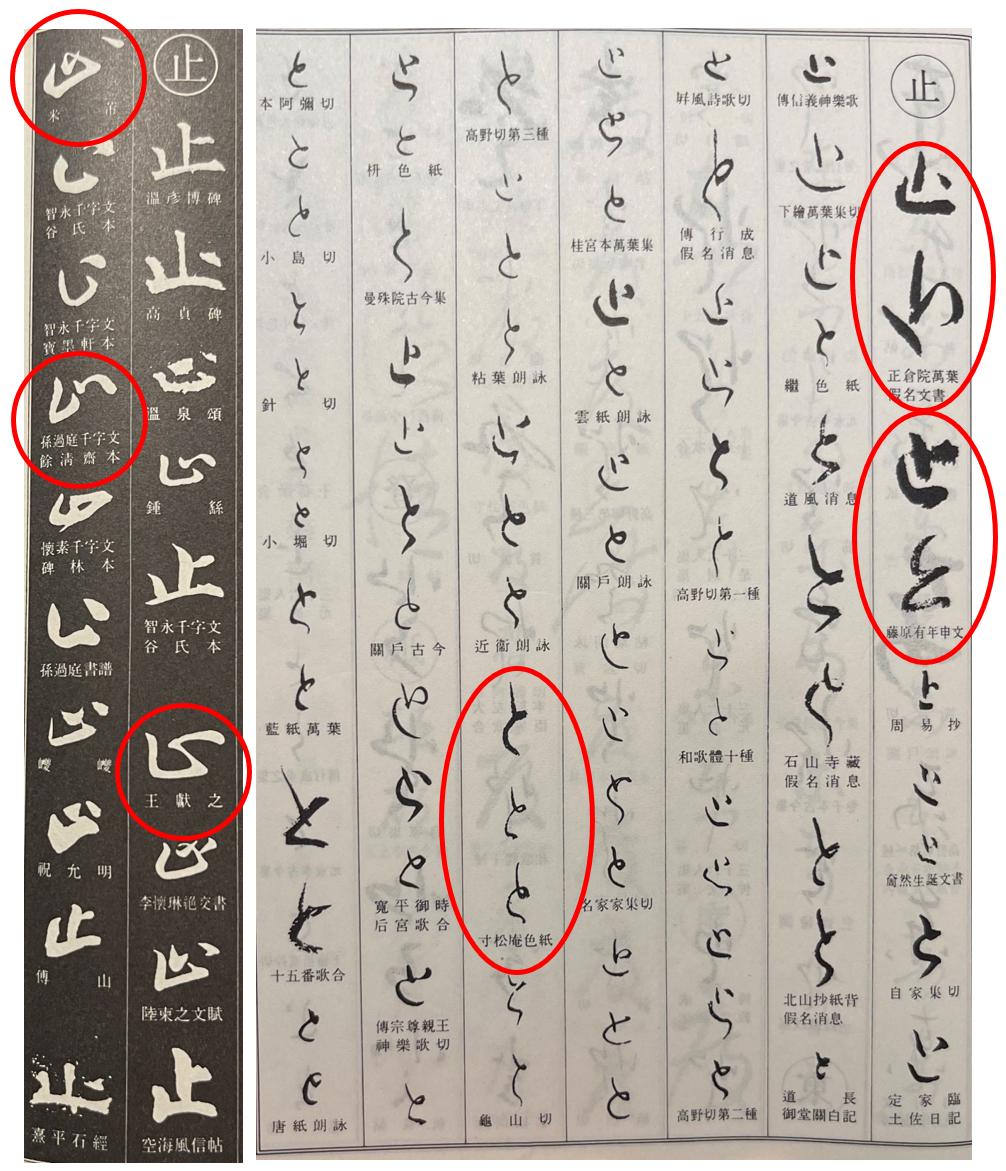 止
溫彦博碑
高貞碑
溫泉頌
智永千字文
谷氏本
王獻之
李懷琳絕交書
陸柬之文賦
空海風信帖
米芾
智永千字文
谷氏本
智永千字文
寶墨軒本
孫過庭千字文
餘淸齋本
懷素千字文
碑林本
孫過庭書譜
巙巙
祝允明
傅山
熹平石經
止
正倉院萬葉
假名文書
藤原有年申文
周易抄
奝然生誕文書
自家集切
定家臨
土佐日記
傳信義神樂歌
下繪萬葉集切
繼色紙
道風消息
石山寺藏
假名消息
北山抄紙背
假名消息
道長
御堂關白記
屛風詩歌切
傳行成
假名消息
高野切第一種
和歌體十種
高野切第二種
桂宮本萬葉集
雲紙朗詠
關戶朗詠
名家家集切
高野切第三種
粘葉朗詠
近衞朗詠
寸松庵色紙
龜山切
枡色紙
曼殊院古今集
關戶古今
寬平御時
后宮歌合
傳宗尊親王
神樂歌切
本阿彌切
小島切
針切
小堀切
藍紙萬葉
十五番歌合
唐紙朗詠